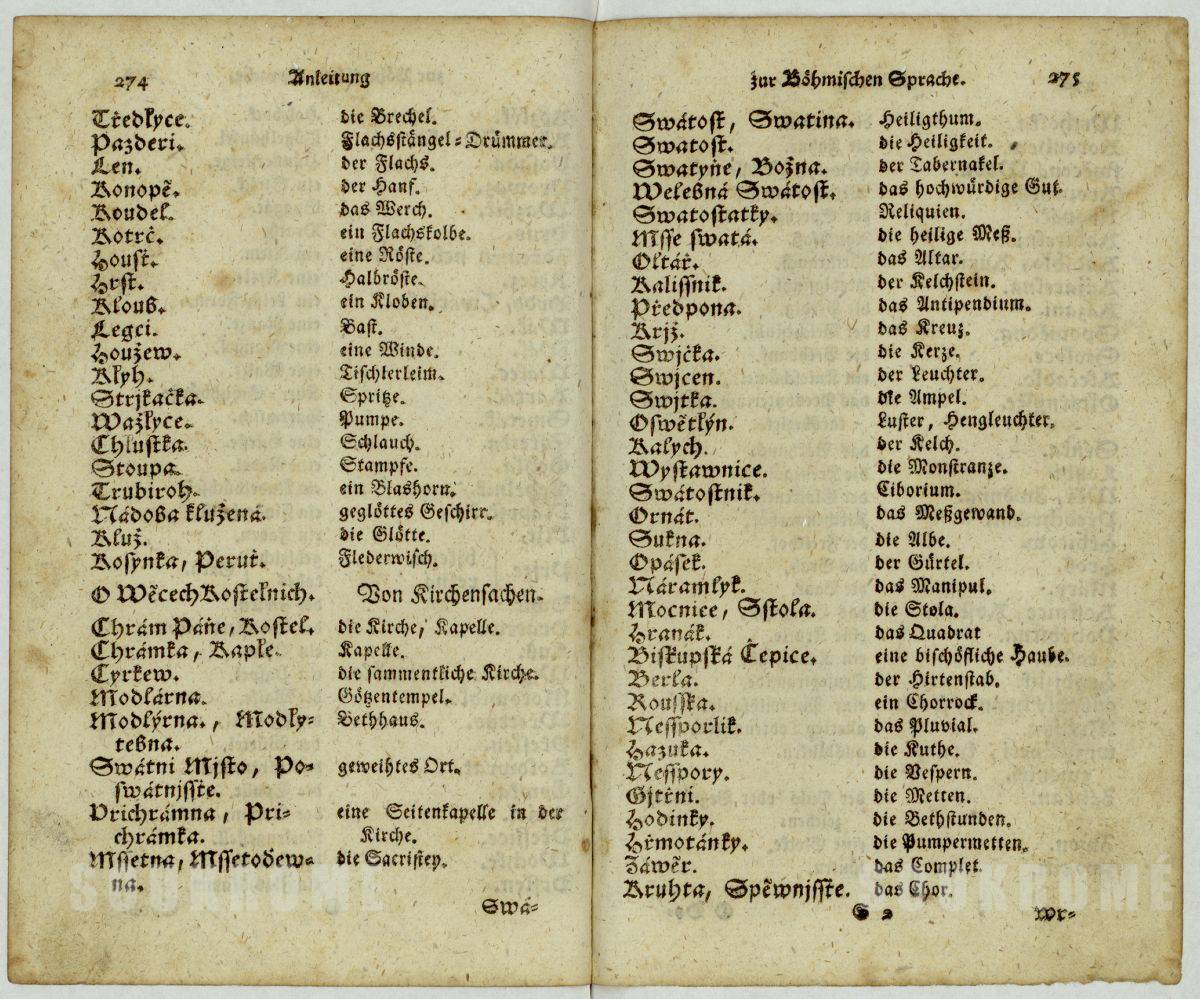 274 Anleitung
Tředlyce. die Brechel.
Pazderj. Flachsstängel-Drümmer.
Len. der Flachs.
Konopě. der Hanf.
Koudel. das Werch.
Kotrč. ein Flachskolbe.
Haušť. eine Röste.
Hrst. Halbröste.
Kloub. ein Kloben.
Legcj. Bast.
Houžew. eine Winde.
Klyh. Tischlerleim.
Střjkačka. Spritze.
Wažlyce. Pumpe.
Chlustka. Schlauch.
Stoupa. Stampfe.
Trubiroh. ein Blashorn.
Nádoba klužená. geglöttes Geschirr.
Kluž. die Glötte.
Kosynka, Peruť. Flederwisch.
O Wěcech Kostelnich. Von Kirchensachen.
Chrám Páně, Kostel. die Kirche, Kapelle.
Chrámka, Kaple. Kapelle.
Cyrkew. die sammentliche Kirche.
Modlárna. Götzentempel.
Modlýrna., Modly- Bethhaus.
tebna.
Swátni Mjsto, Po- geweihtes Ort.
swátnjsste.
Prichrámna, Pri- eine Seitenkapelle in der
chrámka. Kirche.
Mssetna, Mssetodew- die Sacristey.
na.
Swá-
zur Böhmischen Sprache. 275
Swátost, Swatina. Heiligthum.
Swatost. die Heiligkeit.
Swatyně, Božna. der Tabernakel.
Welebná Swátost. das hochwürdige Gut.
Swatostatky. Reliquien.
Msse swatá. die heilige Meß.
Oltář. das Altar.
Kalissnik. der Kelchstein.
Předpona. das Antipendium.
Křjž. das Kreuz.
Swjčka. die Kerze.
Swjcen. der Leuchter.
Swjtka. die Ampel.
Oswětlýn. Luster, Hengleuchter.
Kalych. der Kelch.
Wystawnice. die Monstranze.
Swátostnik. Ciborium.
Ornát. das Meßgewand.
Sukna. die Albe.
Opásek. der Gürtel.
Náramlyk. das Manipul.
Mocnice, Sstola. die Stola.
Hranák. das Quadrat
Biskupská Čepice. eine bischöfliche Haube.
Berla. der Hirtenstab.
Rousska. ein Chorrock.
Nessporlik. das Pluvial.
Hazuka. die Kuthe.
Nesspory. die Vespern.
Gjtřni. die Metten.
Hodinky. die Bethstunden.
Hřmotánky. die Pumpermetten.
Záwěr. das Complet.
Kruhta, Spěwnjsste. das Chor.
S 2 Wr-